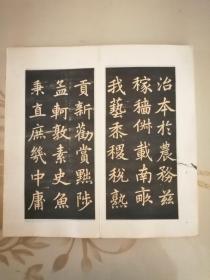 治本於農務茲
稼穡俶載南畝
我藝黍稷稅熟
貢新勸賞黜陟
孟軻敦素史魚
秉直庶幾中庸